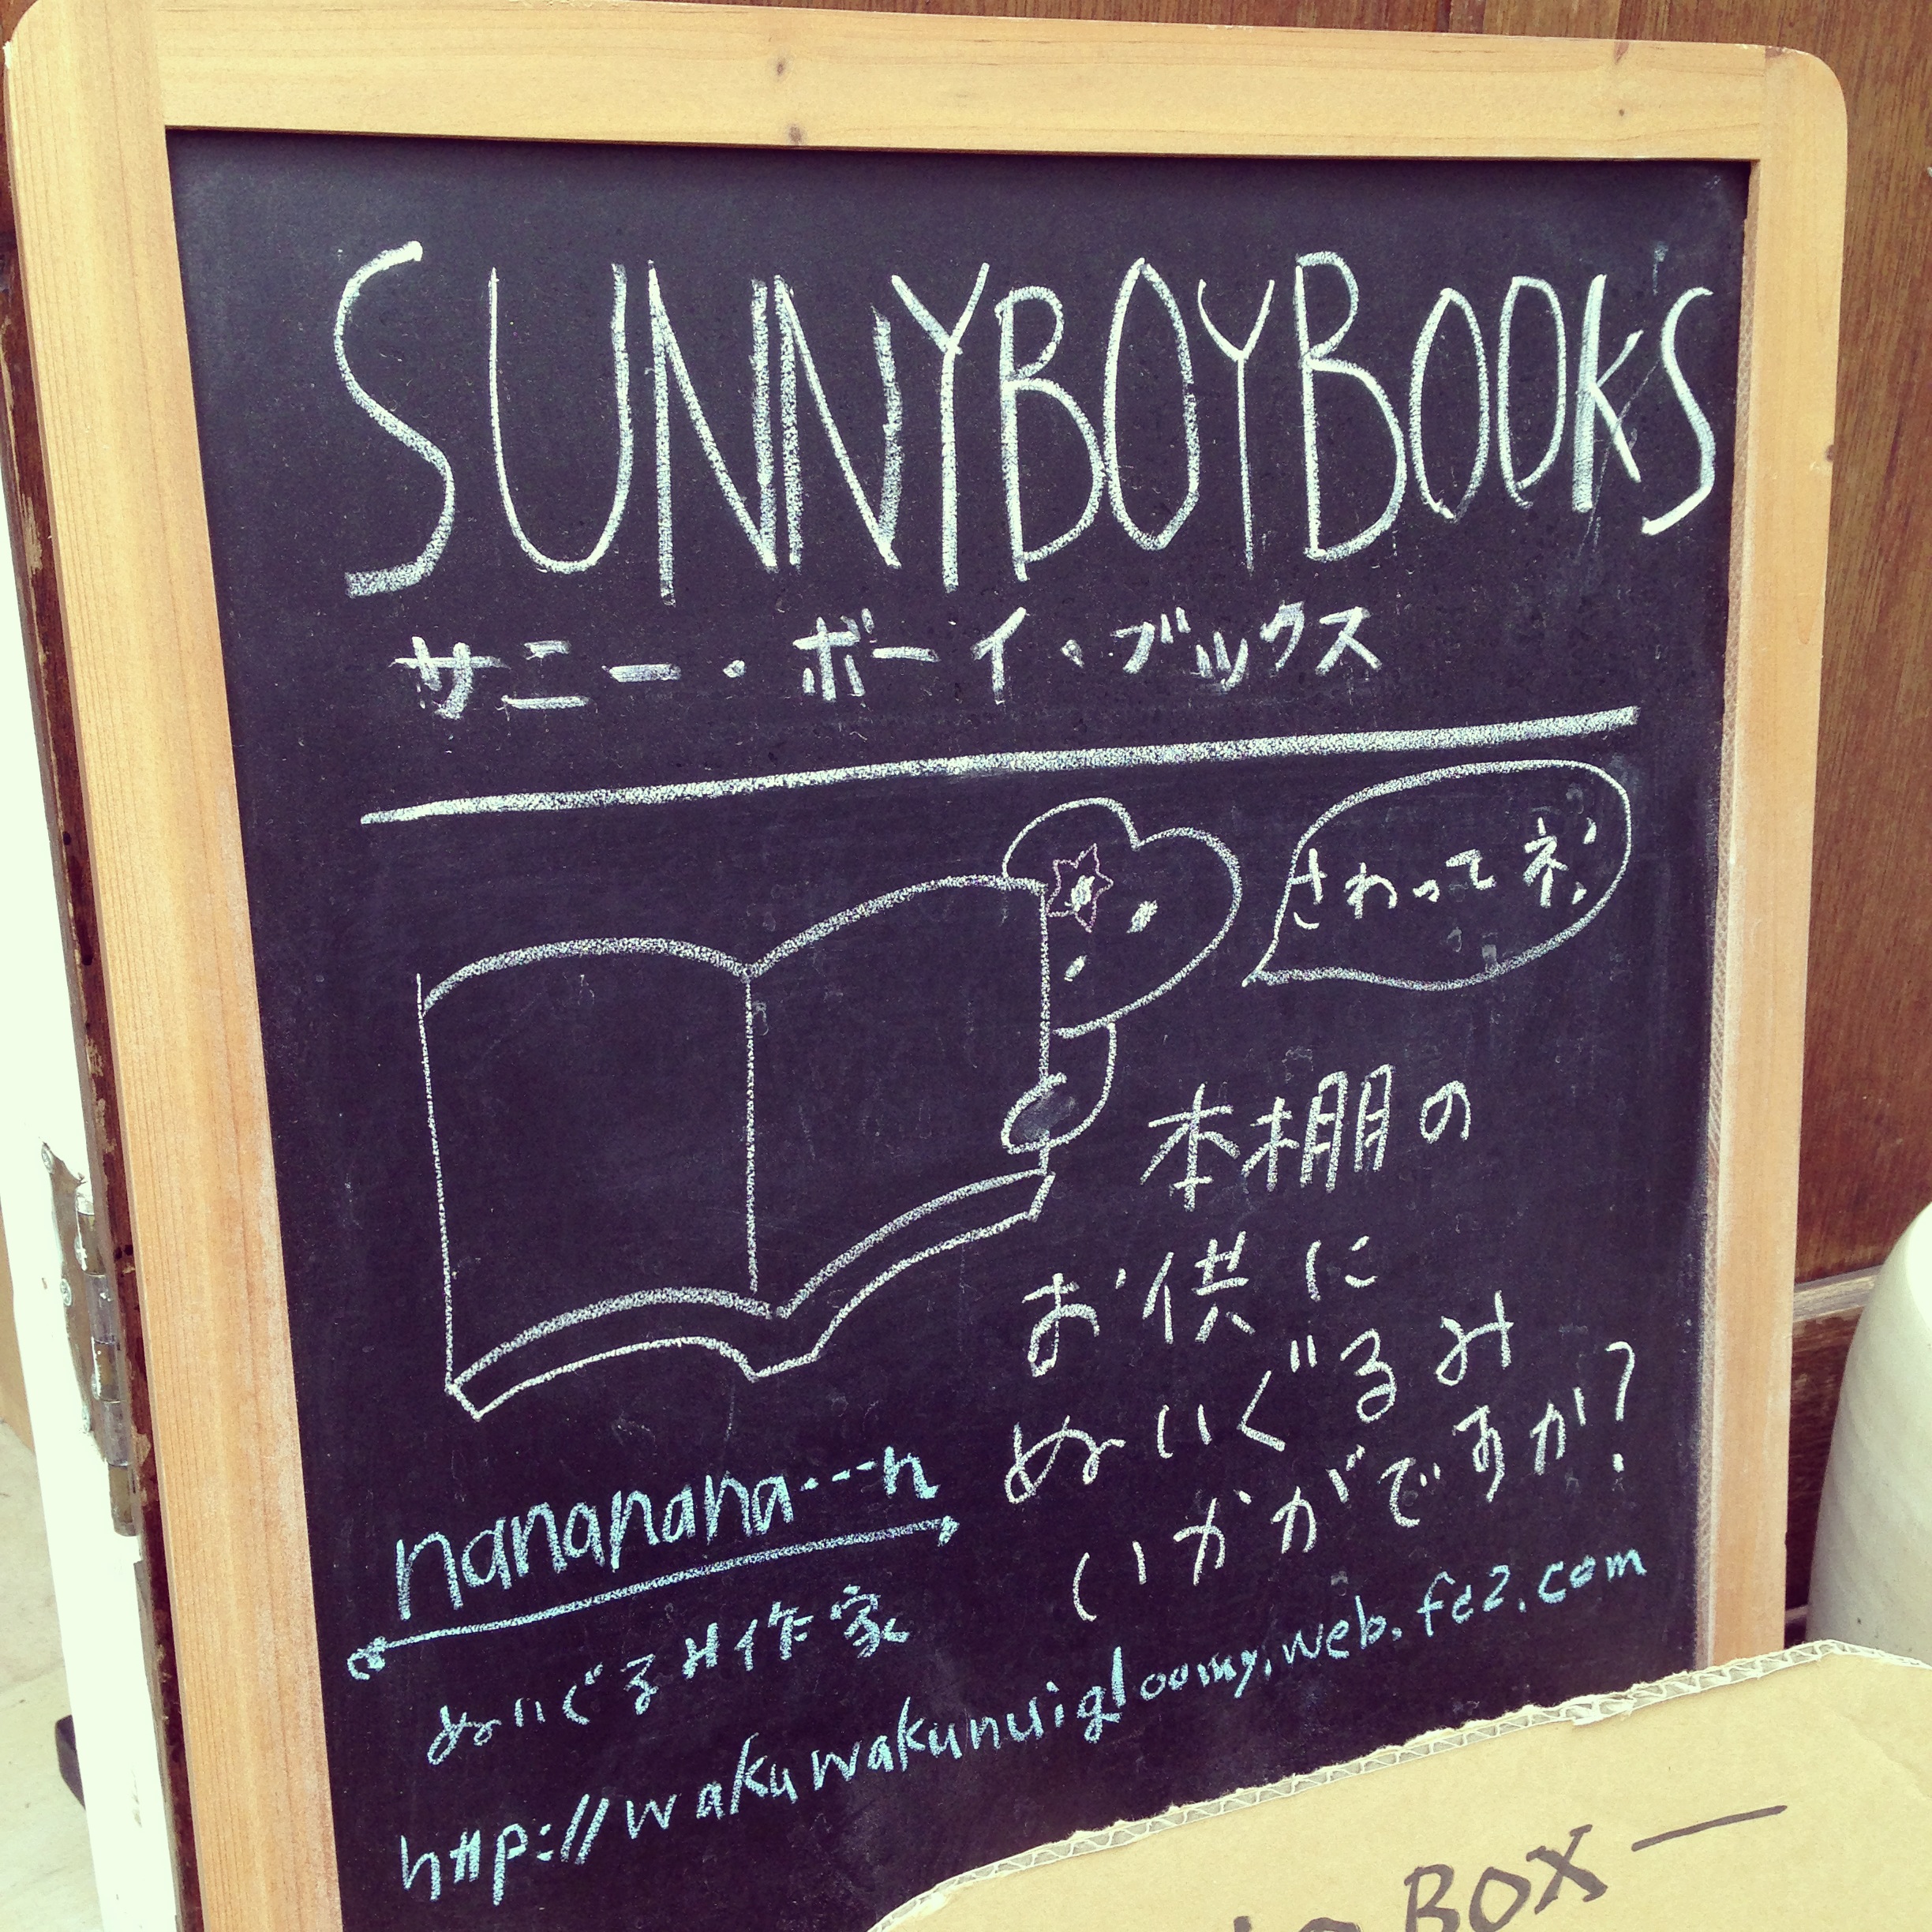 SUNNYBOYBOOK'S
サニー・ボーイ・ブックス
さわってネ!
本棚の
お供に
ぬいぐるみ
いかがですか?
nananana…n
ぬいぐるみ作家
http://wakuwakunuigloomy.web.fc2.com
BOX —